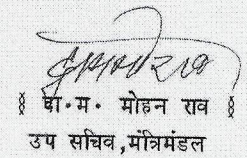 § वा·म· मोहन राव §
उप सचिव,मंत्रिमंडल